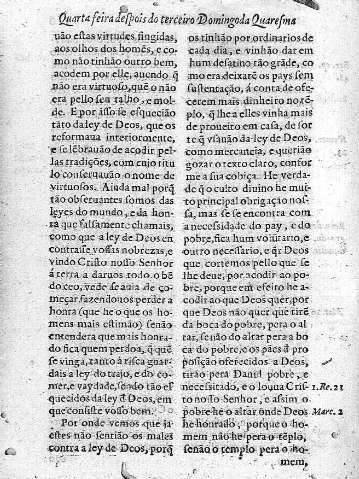 Quarta feira despois do terceiro Domingo da Quaresma
uão estas virtudes fingidas,
aos olhos dos homẽs, e co-
mo não tinhão outro bem,
acodem por elle, auendo q̃
não era virtuoso, quẽ o não
era pello seu talho, e mol-
de. E por isso se esquecião
tãto da ley de Deos, que os
reformaua interiormente,
e se lẽbrauão de acodir pel-
las tradições, com cujo titu
lo conseruauão o nome de
virtuosos. Ainda mal porq̃
tão obseruantes somos das
leyes do mundo, e da hon-
ra que falsamente chamais,
como que a ley de Deos en
contrasse vossas nobrezas, e
vindo Cristo nosso Senhor
á terra a daruos todo o bẽ
do ceo, vede se auia de co-
meçar fazendouos perder a
honra (que he o que os ho-
mens mais estimão) senão
entendera que mais honra-
do fica quem perdoa, q̃ quẽ
se vinga, tanto á risca guar-
dais a ley do trajo, e do co-
mer, e vaydade, sendo tão es
quecidos da ley de Deos, em
que consiste vosso bem.
Por onde vemos que ja
estes não sentião os males
contra a ley de Deos, porq̃
os tinhão por ordinarios de
cada dia, e vinhão dar em
hum desatino tão grãde, co
mo era deixarẽ os pays sem
sustentação, á conta de ofe-
cerem mais dinheiro no tẽ-
plo, q̃ lhe a elles vinha mais
de proueito em casa, de sor
te q̃ vsauão da ley de Deos,
como mercancia, e querião
gozar o texto claro, confor
me a sua cobiça. He verda-
de q̃ o culto diuino he mui
to principal obrigação nos-
sa, mas se se encontra com
a necessidade do pay, e do
pobre, fica hum volũtario, e
outro necessario, e q̃r Deos
que cortemos pello que se
lhe deue, por acodir ao po-
bre, porque em efeito he a-
codir ao que Deos quer, por
que Deos não quer que tirẽ
da boca do pobre, pera o al
rar, senão do altar pera a bo
ca do pobre, e os pães da pro
posição offerecidos a Deos,
tirão pera Dauid pobre, e
necessitado, e o louua Cris- 1.Re.21
to nosso Senhor, e assim o Marc. 2
pobre he o altar onde Deos
he honrado, porque o ho-
mem não he pera o tẽplo,
senão o templo pera o ho-
mem,